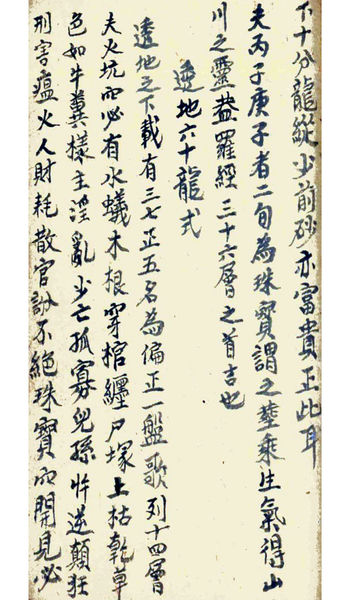 十分龍縱少前砂亦富貴正此耳
夫丙子庚子者二旬為珠寳謂之塟乘生氣得山
川之靈盖羅經三十六層之首吉也
透地六十龍式
透地之下載有三七正五名為偏正一盤歌列十四層
夫火坑內必有水蟻木根穿棺纏尸塚上枯乾草
色如牛糞樣主淫亂少亡孤寡兒孫忤逆顛狂
刑害瘟火人財耗散官訟不絕珠寳內開見必